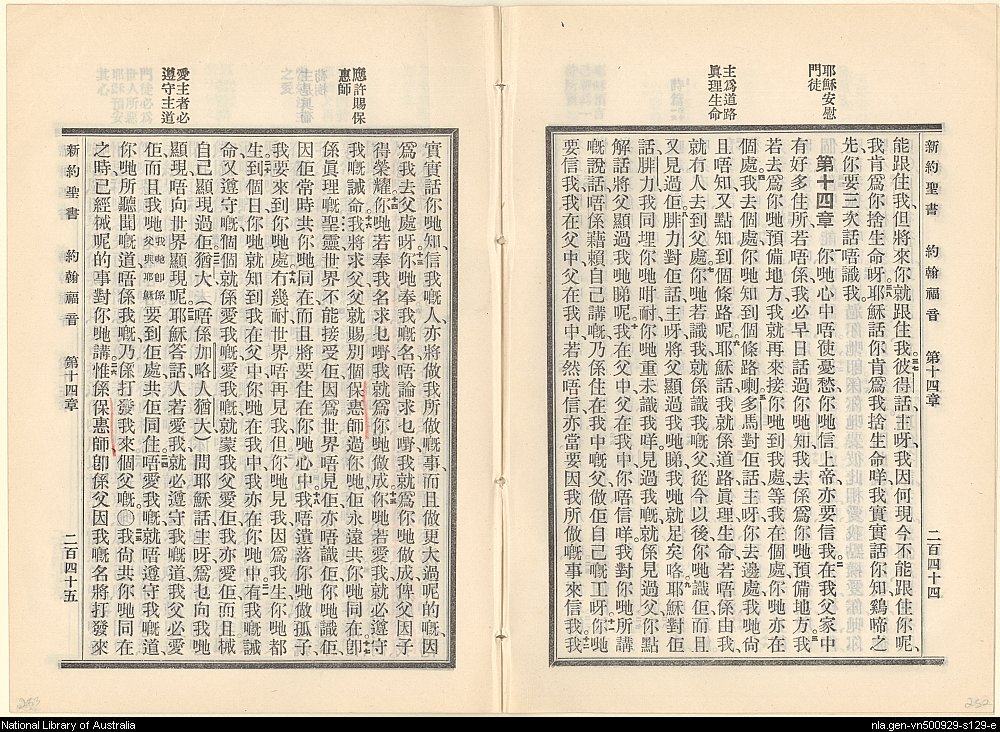 耶穌安慰
門徒
主爲道路
眞理生命
新約聖書 約翰福音 第十四章 二百四十四
能跟住我、但將來你就跟住我。彼得話、主呀、我因何現今不能跟住你呢、
我肯爲你捨生命呀。耶穌話、你肯爲我捨生命咩、我實實話你知、鷄啼之
先、你要三次話唔識我。
第十四章 你哋心中唔使憂愁、你哋信上帝、亦要信我。在我父家中、
有好多住所、若唔係、我必早日話過你哋知、我去係爲你哋預備地方。我
若去爲你哋預備地方、我就再來接你哋到我處、等我在個處、你哋亦在
個處。我去個處你哋知到、個條路你哋知到個條路喇。多馬對佢話、主呀、你去邊處、我哋尙
且唔知、又點知到個條路呢。耶穌話、我就係道路眞理生命、若唔係由我、
就有人去到父處。你哋若識我、就係識我父、從今以後、你哋識佢、而且
又見過佢。腓力對佢話、主呀、將父顯過我哋睇、我哋就足矣咯。耶穌對佢
話、腓力、我同埋你哋咁耐、你哋重未識我咩、見過我嘅、就係見過父、你點
解話、將父顯過我哋睇呢。我在父中、父在我中、你唔信咩、我對你哋所講
嘅說話、唔係藉賴自己講嘅、乃係住在我中嘅父、做佢自己嘅工呀。你哋
要信我、我在父中、父在我中、若然唔信、亦當要因我所做嘅事來信我。我
應許賜保
惠師
愛主者必
遵守主道
實實話你哋知、信我嘅人、亦將做我所做嘅事、而且做更大過呢的嘅、因
爲我去父處呀。你哋奉我名、唔論求乜嘢、我就爲你哋做成、俾父因子
得榮耀。你哋若奉我名求乜嘢、我就爲你哋做成。你哋若愛我、就必遵守
我嘅誡命。我將求父、父就賜別個保惠師過你哋、佢永遠共你哋同在、卽
係眞理嘅聖靈、世界不能接受佢、因爲世界唔見佢、亦唔識佢、你哋識佢、
因佢常時共你哋同在、而且將要住在你哋心中。我唔遺落你哋做孤子、
我要來到你哋處。有幾耐世界唔再見我、但你哋見我、因爲我生、你哋都
生。到個日你哋就知到我在父中、你哋在我中、我亦在你哋中。有我嘅誡
命、又遵守嘅、個個就係愛我嘅、愛我嘅就蒙我父愛佢、我亦愛佢、而且械
自己顯現過佢。猶大（唔係加略人猶大）問耶穌話、主呀、爲乜向我哋
顯現、唔向世界顯現呢。耶穌答話、人若愛我、就必遵守我嘅道、我父必愛
佢、而且我哋 我哋卽係父與耶穌 要到佢處共佢同住。唔愛我嘅、就唔遵守我嘅道、
你哋所聽聞嘅道、唔係我嘅、乃係打發我來個父嘅。我尙共你哋同在
之時、已經械呢的事對你哋講。惟係保惠師、卽係父因我嘅名將打發來
新約聖書 約翰福音 第十四章 二百四十五
253
252
National Library of Australia
nla.gen-vn500929-s129-e